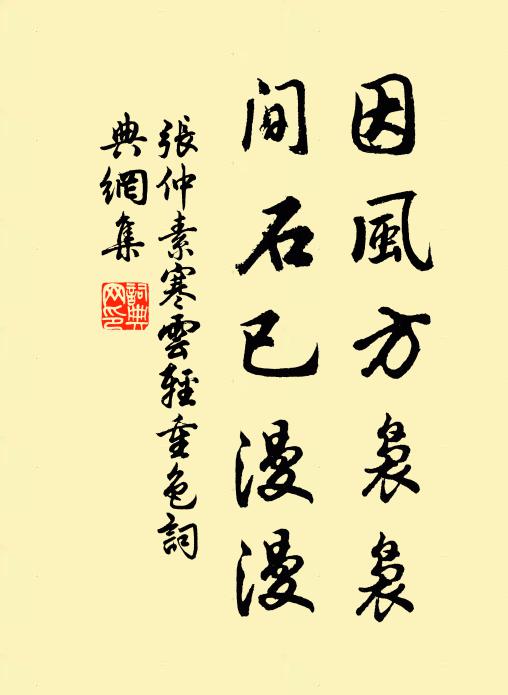 因風方袅袅
間石已漫漫
張仲素寒雲輕重色詞
典網集
詞典网印